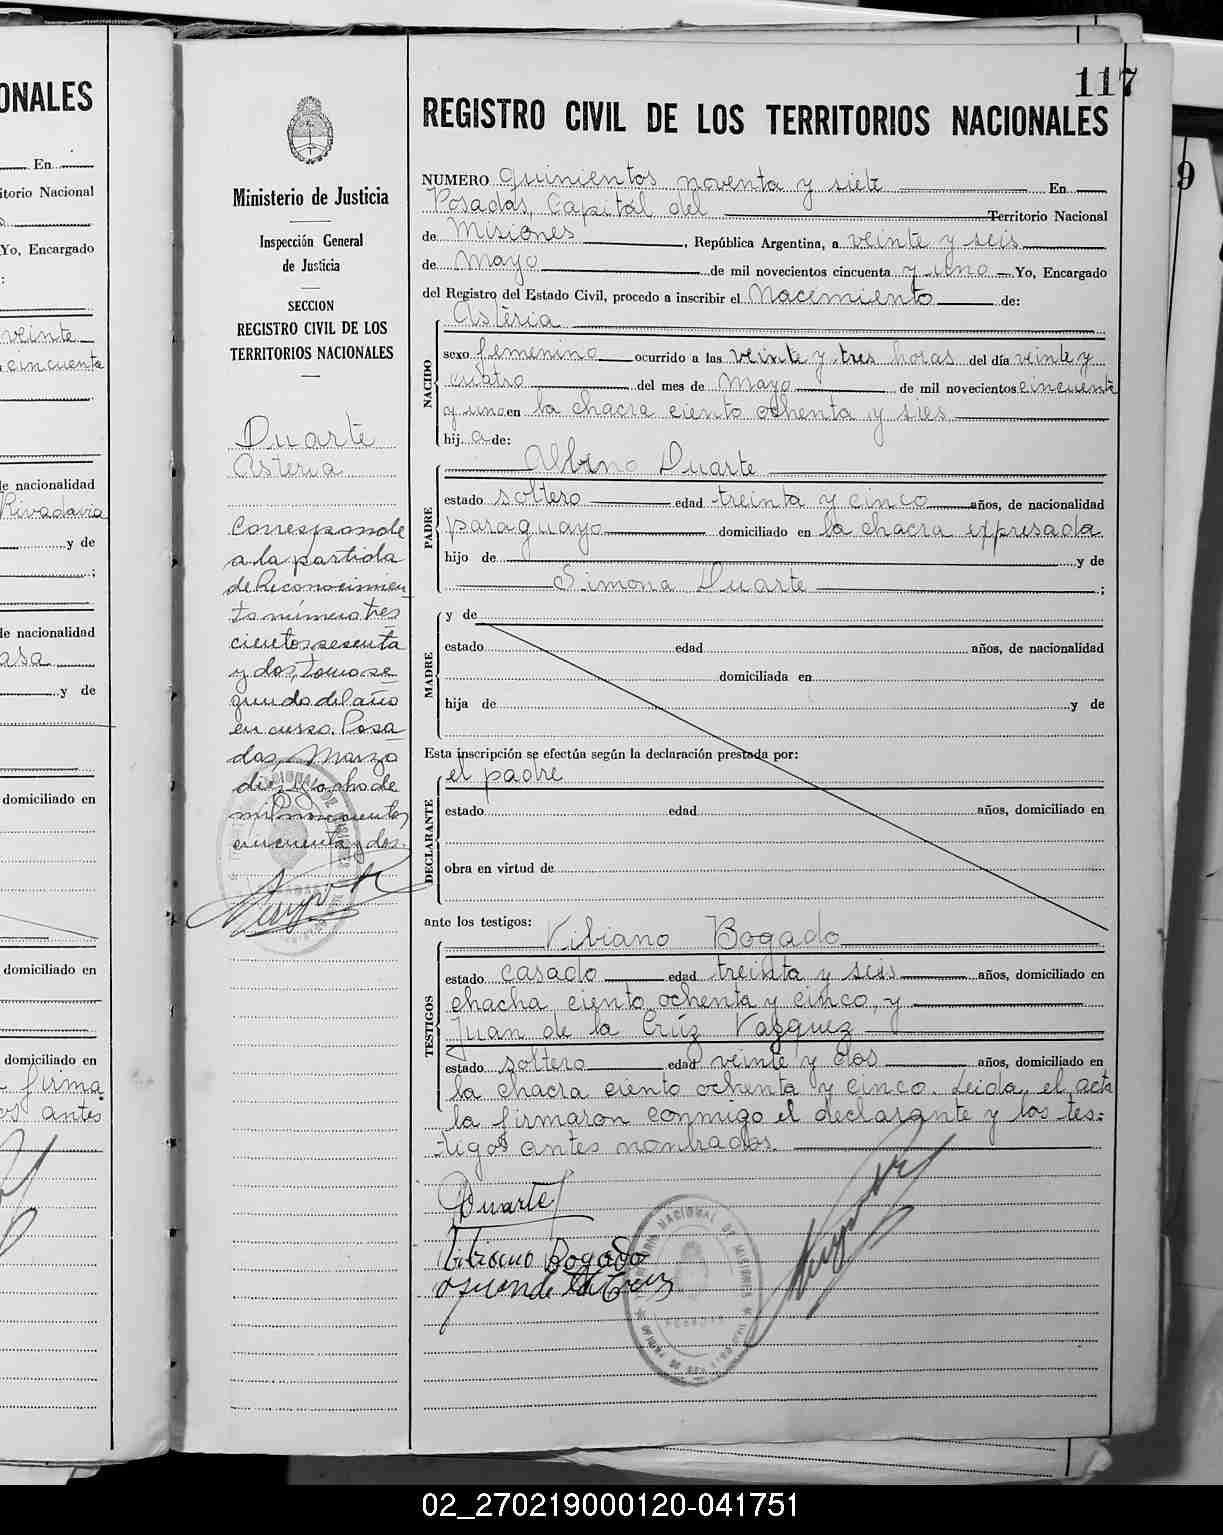 ONALES
En
itorio Nacional
Yo, Encargado
:
veinte
cincuenta
de nacionalidad
Rivadavia
y de
;
de nacionalidad
asa
y de
domiciliado en
domiciliado en
domiciliado en
firma
os antes
117
9
Ministerio de Justicia
Inspección General
de Justicia
SECCION
REGISTRO CIVIL DE LOS
TERRITORIOS NACIONALES
Duarte
Asteria
Corresponde
a la partida
de Reconocimien
to número tres
cientos sesenta
y dos, tomo se
gundo del año
en curso. Posa
das, Marzo
diez y ocho de
mil novecientos
cincuenta y dos.
REGISTRO CIVIL DE LOS TERRITORIOS NACIONALES
NUMERO quinientos noventa y siete En
Posadas, Capital del Territorio Nacional
de Misiones, República Argentina, a veinte y seis
de mayo de mil novecientos cincuenta y uno Yo, Encargado
del Registro del Estado Civil, procedo a inscribir el Nacimiento de:
NACIDO
Astéria
sexo femenino ocurrido a las veinte y tres horas del día veinte y
cuatro del mes de Mayo de mil novecientos cincuenta
y uno en la chacra ciento ochenta y sies
hija de:
PADRE
Albino Duarte
estado soltero edad treinta y cinco años, de nacionalidad
paraguayo domiciliado en la chacra expresada
hijo de y de
Simona Duarte ;
MADRE
y de
estado edad años, de nacionalidad
domiciliada en
hija de y de
Esta inscripción se efectúa según la declaración prestada por:
DECLARANTE
el padre
estado edad años, domiciliado en
obra en virtud de
ante los testigos:
TESTIGOS
Vibiano Bogado
estado casado edad treinta y seis años, domiciliado en
chacha ciento ochenta y cinco, y
Juan de la Crúz Vazquez
estado soltero edad veinte y dos años, domiciliado en
la chacra ciento ochenta y cinco. Leida el acta
la firmaron conmigo el declarante y los tes-
tigos antes nombrados.
Duarte
Vibiano Bogado
NACIONAL DE MISIONES
POSADAS
02_270219000120-041751